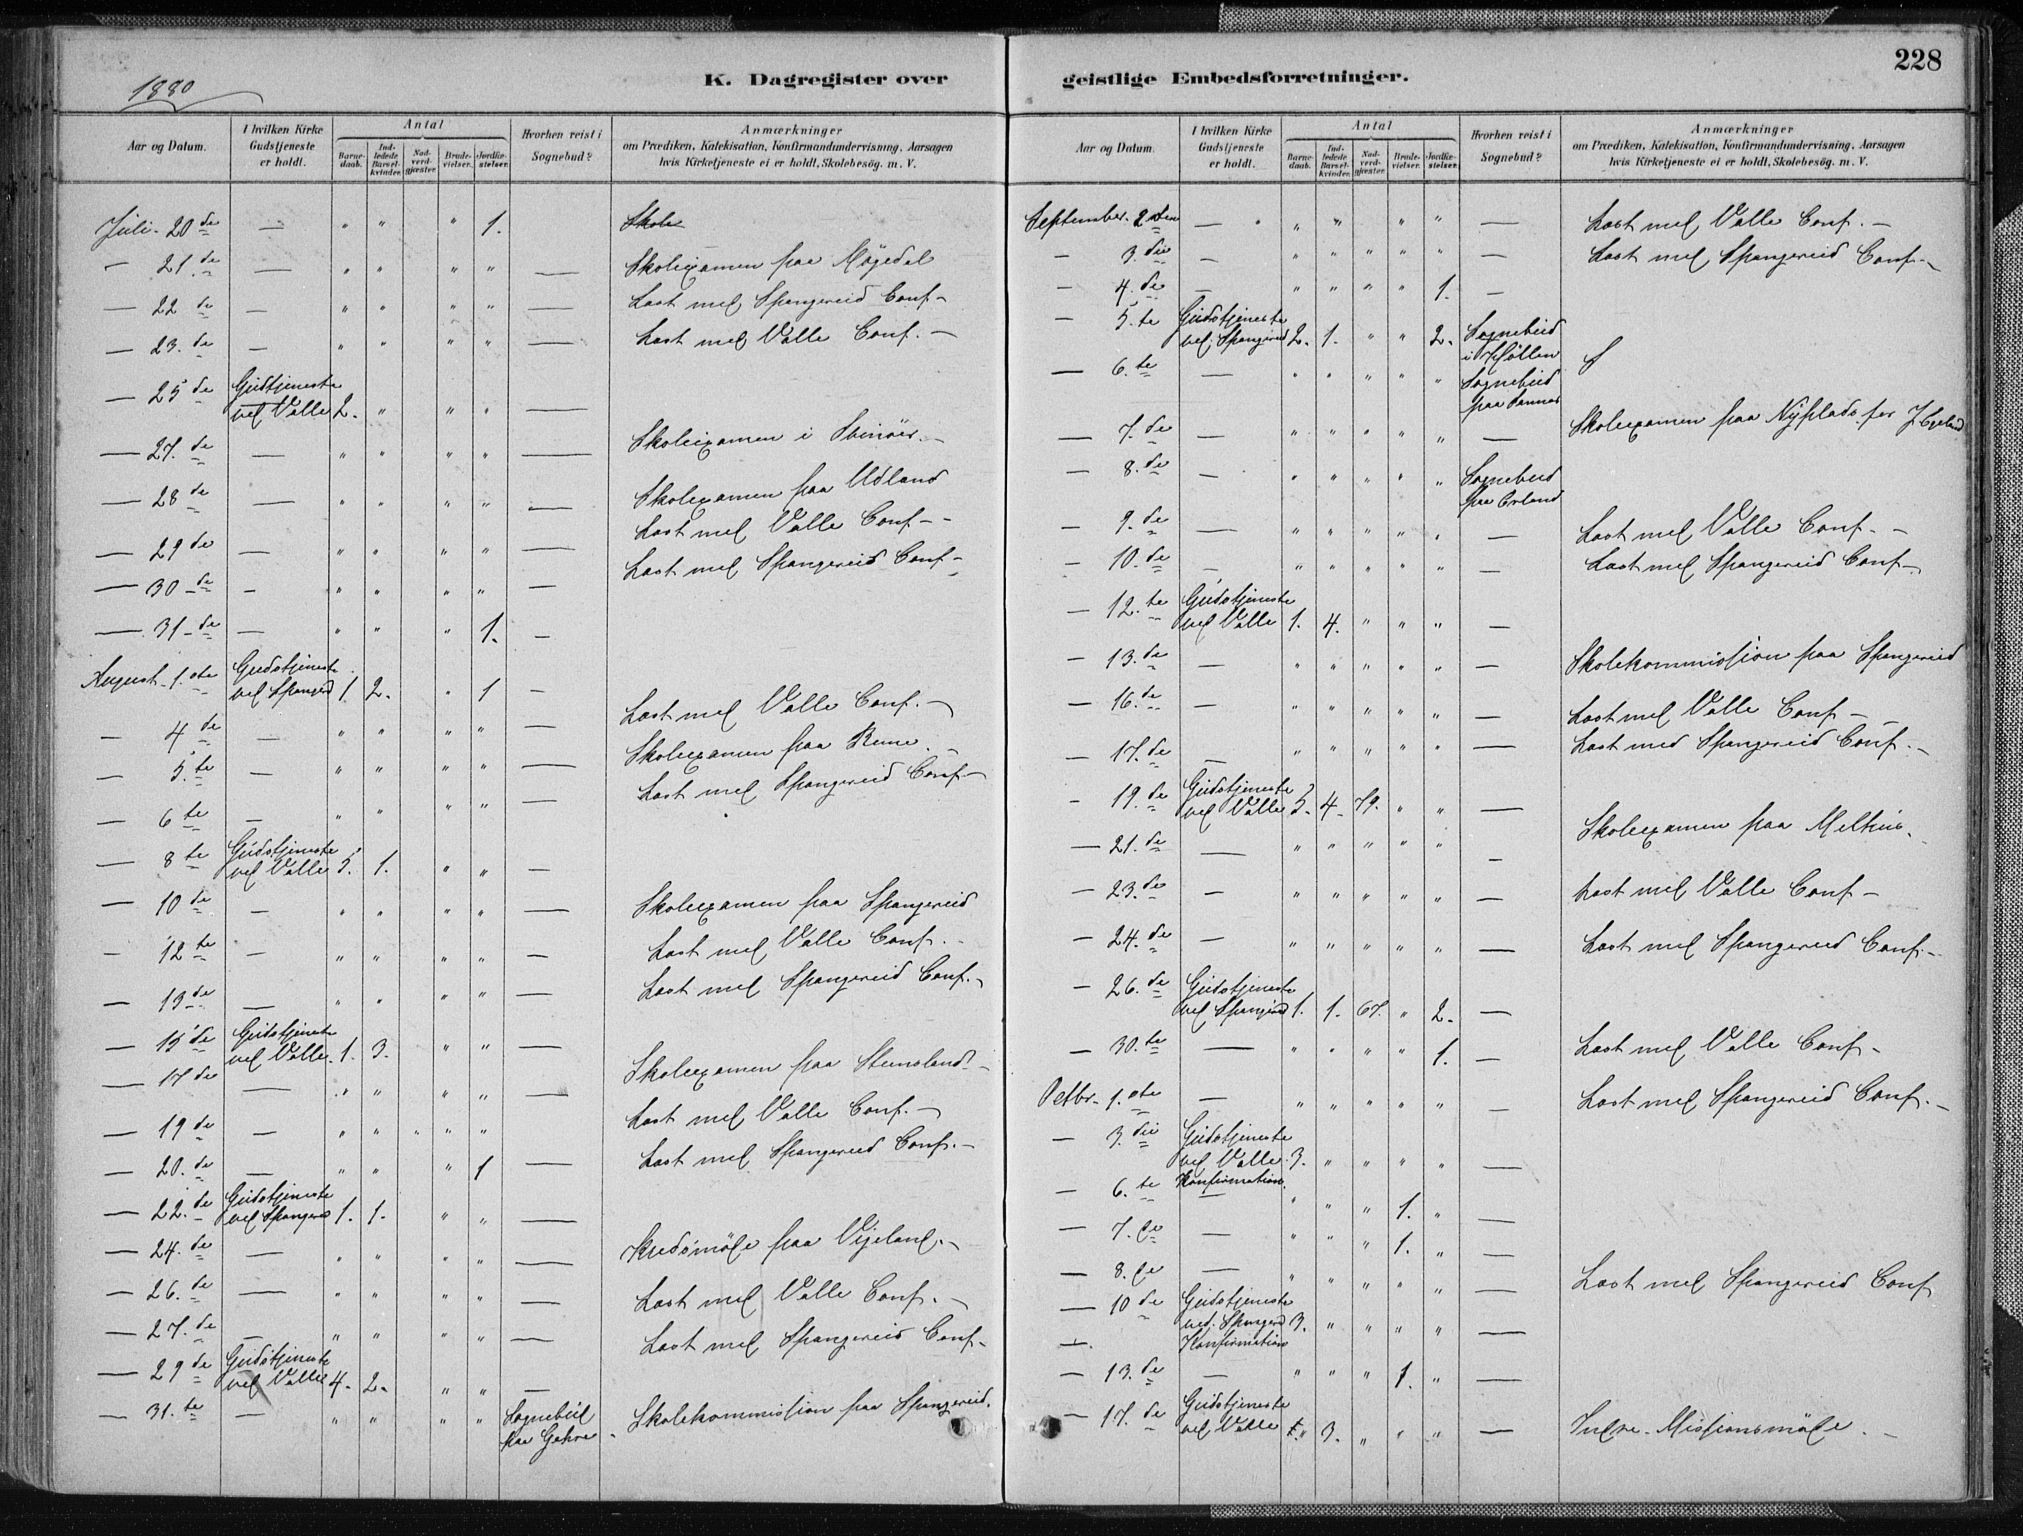 228
1880
K. Dagregister over geistlige Embedsforretninger.
Aar og Datum.
I hvilken Kirke Gudstjeneste er holdt.
Antal
Barnedaab.
Indledede Barselkvinder.
Nadverdgjæster.
Brudevielser.
Jordfæstelser.
Hvorhen reist i Sognebud?
Anmærkninger
om Prædiken, Katekisation, Konfirmandundervisning, Aarsagen
hvis Kirketjeneste ei er holdt, Skolebesøg. m. V.
Juli - 20de — " " " 1. Skole
— 21.de — " " " " — Skolexamen paa Møgedal
— 22de — " " " " — Læst med Spangereid Conf. —
— 23.de — " " " " — Læst med Valle Conf. —
— 25de Gudstjeneste ved Valle 2. " " " —
— 27.de — " " " " — Skolexamen i Svinøer. —
— 28de — " " " " — Skolexamen paa Udland
— 29de — " " " " — Læst med Valle Conf. —
— 30de — " " " " — Læst med Spangereid Conf. —
— 31de — " " " 1. —
August - 1.ste Gudstjeneste ved Spangerd 1. 2. " 1 —
— 4de — " " " " — Læst med Valle Conf. —
— 5.te — " " " " — Skolexamen paa Rem —
— 6te — " " " " — Læst med Spangereid Conf. —
— 8te Gudstjeneste ved Valle 5. 1. " " —
— 10de — " " " " — Skolexamen paa Spangereid
— 12te — " " " " — Læst med Valle Conf. —
— 13de — " " " " — Læst med Spangereid Conf. —
— 15de Gudstjeneste ved Valle 1. 3. " " —
— 17de — " " " " — Skolexamen paa Stensland —
— 19de — " " " " " Læst med Valle Conf. —
— 20.de — " " " 1 — Læst med Spangereid Conf. —
— 22.de Gudstjeneste ved Spangerd 1. 1. " " —
— 24.de — " " " " — Kredsmøde paa Vigeland. —
— 26.de — " " " " — Læst med Valle Conf. —
— 27.de — " " " " — Læst med Spangereid Conf. —
— 29de Gudstjeneste ved Valle 4. 2. " " —
— 31.te — " " " " Sognebud paa Gahre Skolekommission paa Spangereid.
Aar og Datum.
I hvilken Kirke Gudstjeneste er holdt.
Antal
Barnedaab.
Indledede Barselkvinder.
Nadverdgjæster.
Brudevielser.
Jordfæstelser.
Hvorhen reist i Sognebud?
Anmærkninger
om Prædiken, Katekisation, Konfirmandundervisning, Aarsagen
hvis Kirketjeneste ei er holdt, Skolebesøg. m. V.
September - 2den — " " " " — Læst med Valle Conf. —
— 3.die — " " " " " — Læst med Spangereid Conf. —
— 4.de — " " " " 1. —
— 5.te Gudstjeneste ved Spangered 2. 1. " " 2. Sognebud i Høllen
— 6.te — " " " " " Sognebud paa
— 7.de — " " " " " — Skolexamen paa Nyplads for
— 8.de — " " " " " Sognebud paa
— 9.de — " " " " " — Læst med Valle Conf. —
— 10.de — " " " " " — Læst med Spangereid Conf. —
— 12.te Gudstjeneste ved Valle 1. 4. " " " —
— 13.de — " " " " " — Skolekommission paa Spangereid
— 16.de — " " " " " — Læst med Valle Conf. —
— 17.de — " " " " " — Læst med Spangereid Conf. —
— 19.de Gudstjeneste ved Valle 5. 4. 79. " " —
— 21.de — " " " " " — Skolexamen paa
— 23.de — " " " " " — Læst med Valle Conf. —
— 24.de — " " " " " — Læst med Spangereid Conf. —
— 26.de Gudstjeneste ved Spangered 1. 1. 67. " 2. —
— 30.te — " " " " 1. — Læst med Valle Conf. —
Octbr - 1.ste — " " " " " — Læst med Spangereid Conf. —
— 3.die Gudstjeneste ved Valle 3. " " " " —
Konfirmation.
— 6.te — " " " 1. " —
— 7.de — " " " 1. " —
— 8.de — " " " " " — Læst med Spangereid Conf
— 10de Gudstjeneste ved. Spangerd 3. " " " " —
—. Konfirmation
— 13.de — " " " 1. " —
— 17.de Gudstjeneste ved Valle " 3. " " " — Indre-Missionsmøde. —